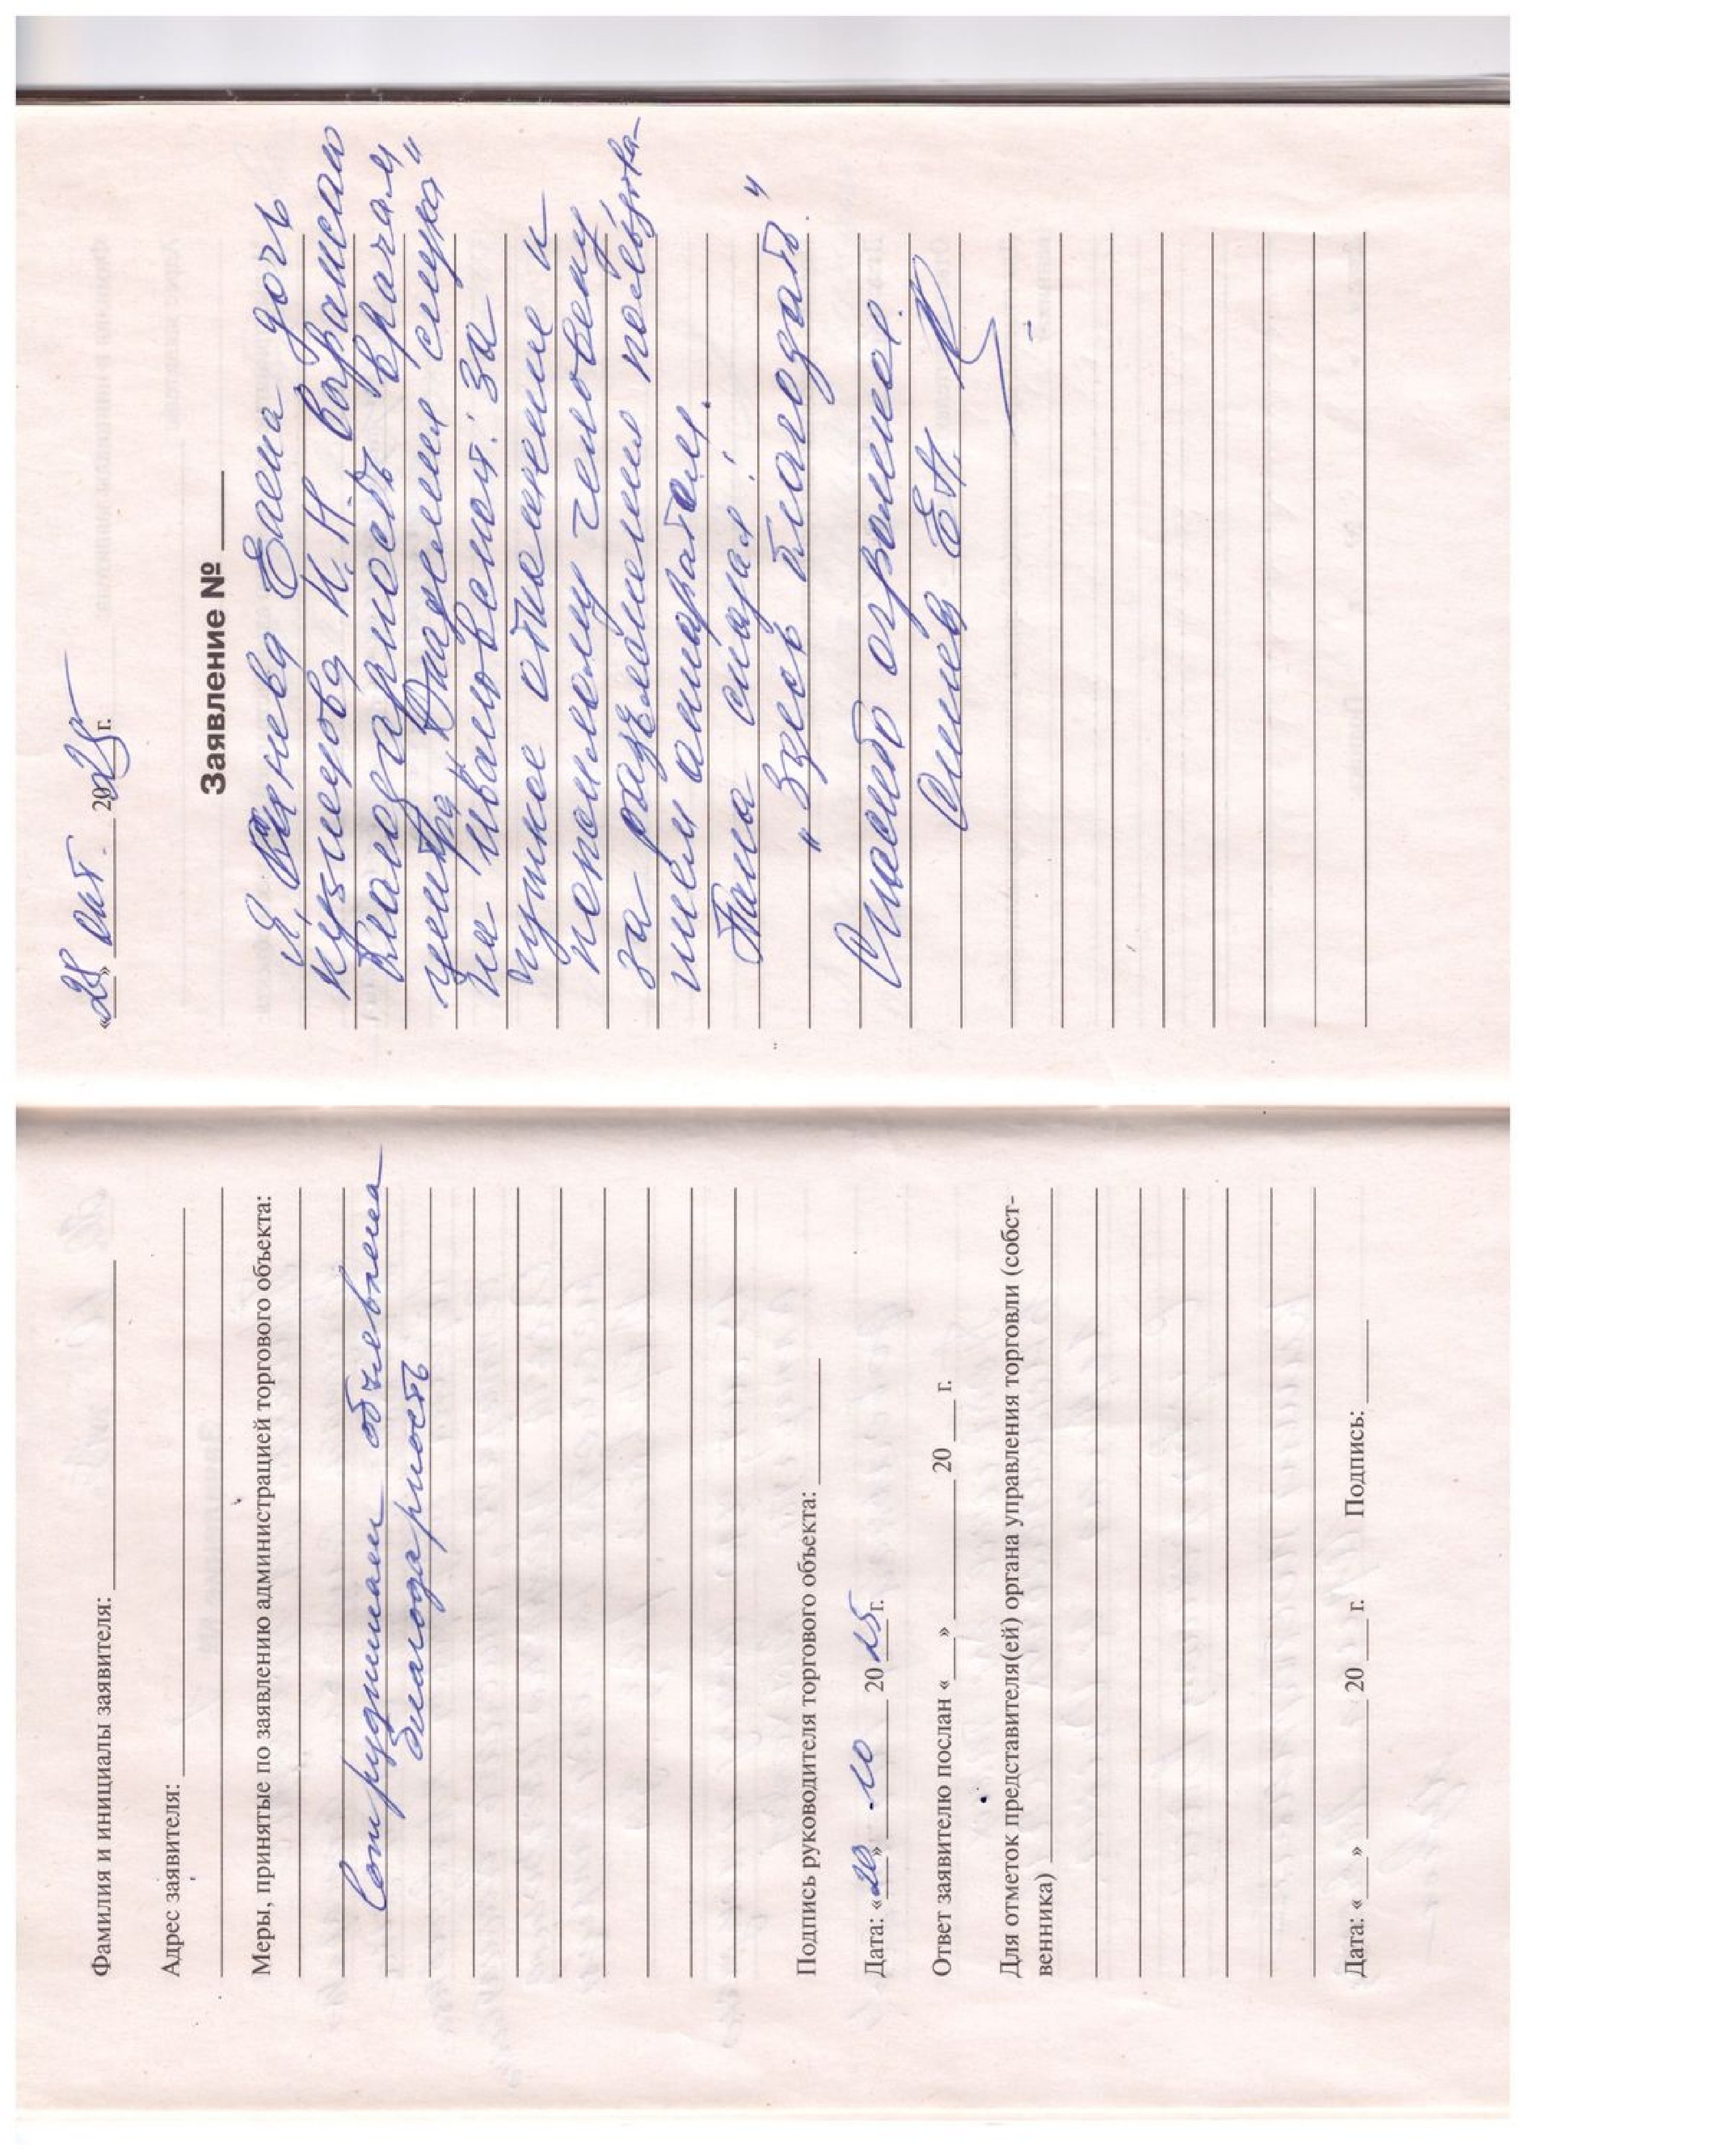 Фамилия и инициалы заявителя:
Адрес заявителя:
Меры, принятые по заявлению администрацией торгового объекта:
Сотрудникам объявлена
благодарность
Подпись руководителя торгового объекта:
Дата: «29» 10 2025 г.
Ответ заявителю послан «___» ______ 20 ___ г.
Для отметок представителя(ей) органа управления торговли (собст-
венника)
Дата: «___» ______ 20 ___ г. Подпись:
«28» Окт. 2025 г.
Заявление №
Я, Елена дочь
Кузнецова Н. Н. выражаю
благодарность врачам
центра „Академия слуха"
на Ивановской. За
чуткое отношение к
пожилому человеку
за разъяснения пользова-
ния аппаратом.
Папа сказал:
„Здесь благодать"
Спасибо огромное.
Е.Н.